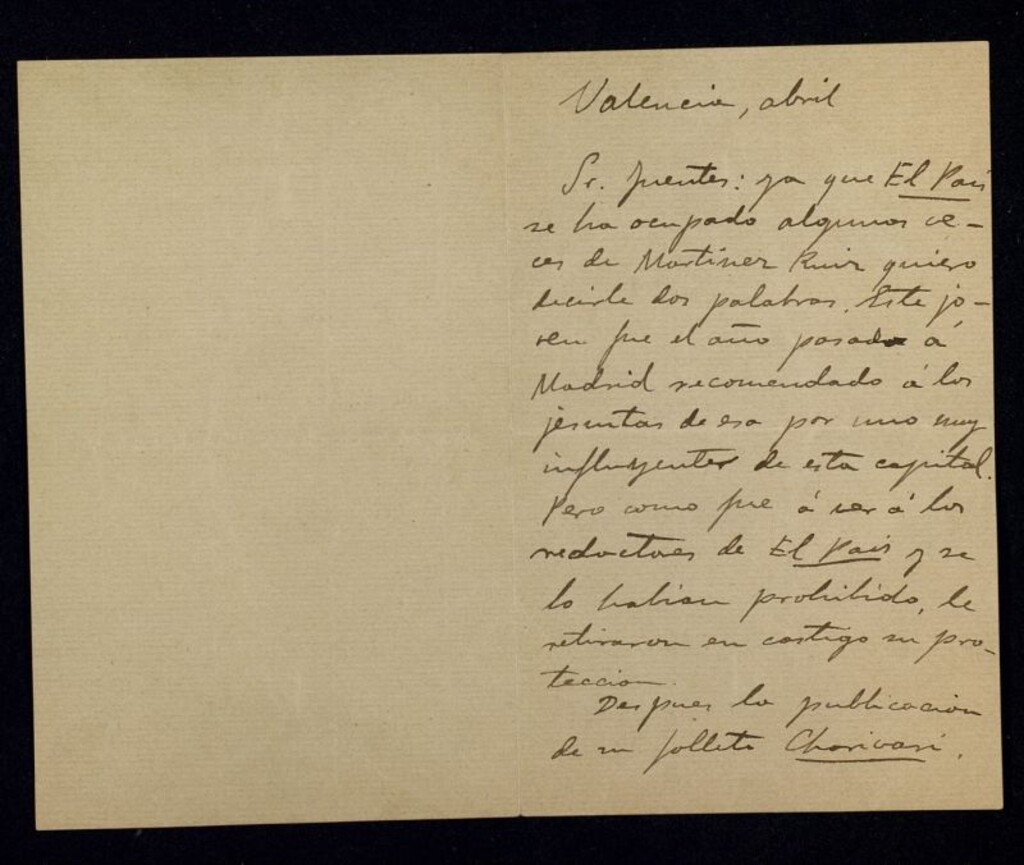 Valencia, abril
Sr. Fuentes: ya que El País
se ha ocupado algunas ve-
ces de Martinez Ruiz quiero
decirle dos palabras. Este jo-
ven fue el año pasado á
Madrid recomendado á los
jesuitas de esa por uno muy
influyente de esta capital.
Pero como fue á ver á los
redactores de El País y se
lo habian prohibido, le
retiraron en castigo su pro-
teccion.
Despues la publicacion
de su folleto Charivari,